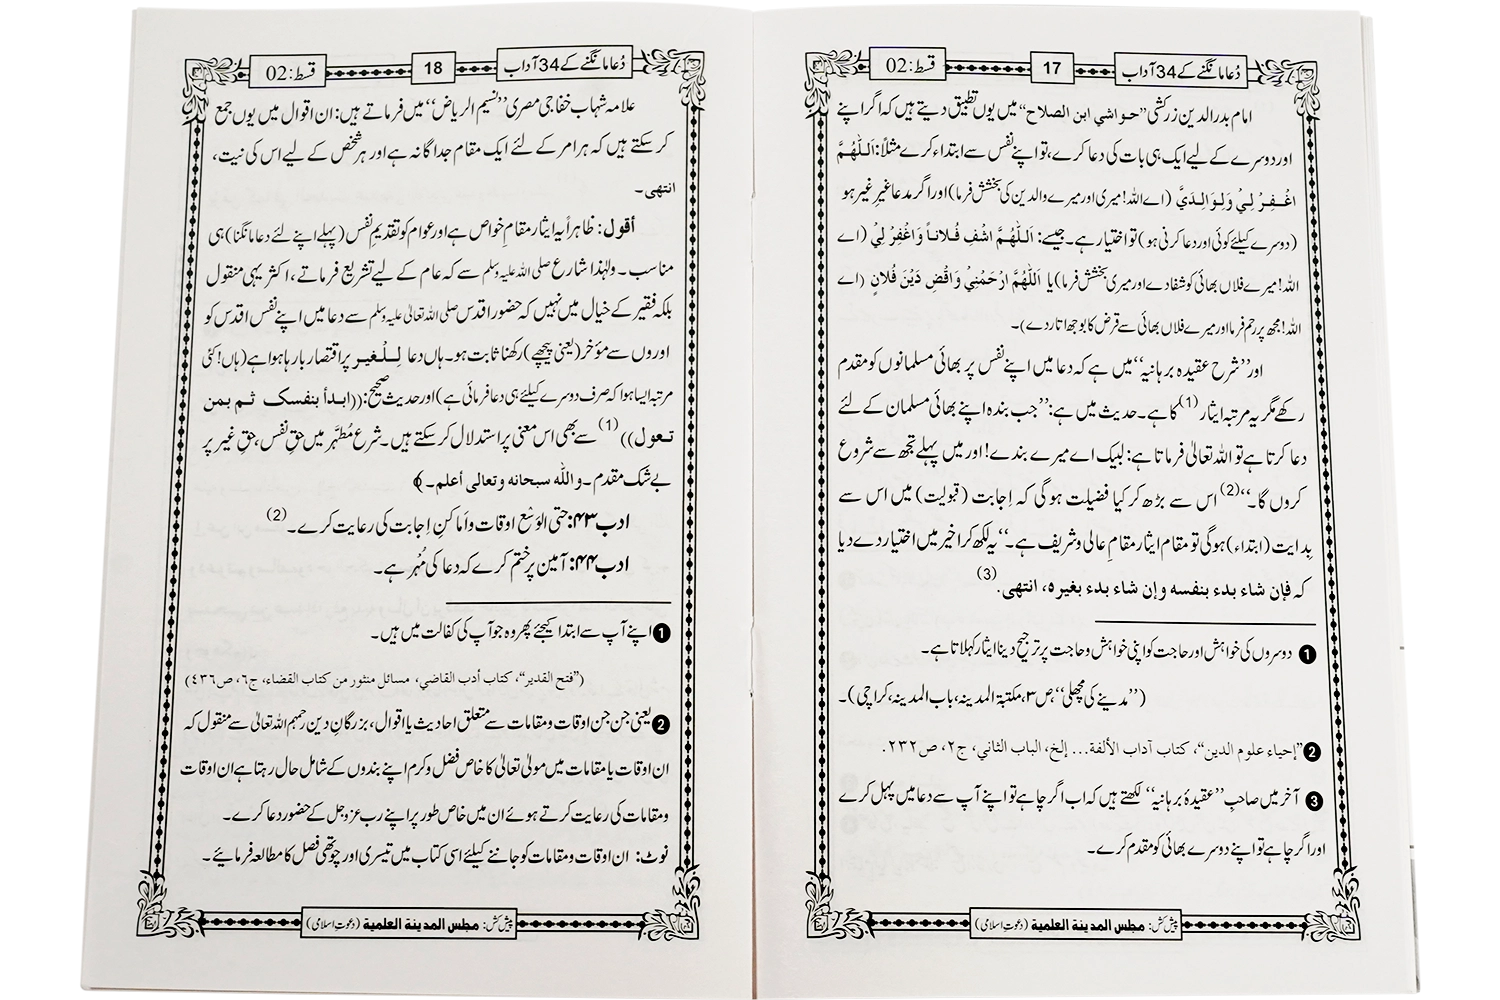 دُعا مانگنے کے 34 آداب
17
قسط:02
امام بدرالدین زرکشی ”حواشي ابن الصلاح“ میں یوں تطبیق دیتے ہیں کہ اگر اپنے
اور دوسرے کے لیے ایک ہی بات کی دعا کرے، تو اپنے نفس سے ابتداء کرے مثلاً: اَللّٰهُمَّ
اغْفِرْ لِيْ وَلِوَالِدَيَّ (اے اللہ! میری اور میرے والدین کی بخشش فرما) اور اگر مدعا غیرِ غیر ہو
(دوسرے کیلئے کوئی اور دعا کرنی ہو) تو اختیار ہے۔ جیسے: اَللّٰهُمَّ اشْفِ فُلَاناً وَاغْفِرْ لِيْ (اے
اللہ! میرے فلاں بھائی کو شفا دے اور میری بخشش فرما) یا اَللّٰهُمَّ ارْحَمْنِيْ وَاقْضِ دَيْنَ فُلَانٍ (اے
اللہ! مجھ پر رحم فرما اور میرے فلاں بھائی سے قرض کا بوجھ اتار دے)۔
اور ”شرح عقیدہ برہانیہ“ میں ہے کہ دعا میں اپنے نفس پر بھائی مسلمانوں کو مقدم
رکھے مگر یہ مرتبہ ایثار (1) کا ہے۔ حدیث میں ہے: ”جب بندہ اپنے بھائی مسلمان کے لئے
دعا کرتا ہے تو اللہ تعالیٰ فرماتا ہے: لبیک اے میرے بندے! اور میں پہلے تجھ سے شروع
کروں گا۔“ (2) اس سے بڑھ کر کیا فضیلت ہوگی کہ اِجابت (قبولیت) میں اس سے
بِدایت (ابتداء) ہوگی تو مقام ایثار مقامِ عالی و شریف ہے۔“ یہ لکھ کر اخیر میں اختیار دے دیا
کہ فإن شاء بدء بنفسه وإن شاء بدء بغيره، انتهى. (3)
❶ دوسروں کی خواہش اور حاجت کو اپنی خواہش و حاجت پر ترجیح دینا ایثار کہلاتا ہے۔
(”مدینے کی مچھلی“ ص۳، مکتبة المدینہ، باب المدینہ، کراچی)۔
❷ ”إحياء علوم الدين“، كتاب آداب الألفة... إلخ، الباب الثاني، ج۲، ص۲۳۲.
❸ آخر میں صاحبِ ”عقیدۂ برہانیہ“ لکھتے ہیں کہ اب اگر چاہے تو اپنے آپ سے دعا میں پہل کرے
اور اگر چاہے تو اپنے دوسرے بھائی کو مقدم کرے۔
پیش کش: مجلس المدینة العلمیة (دعوتِ اسلامی)
دُعا مانگنے کے 34 آداب
18
قسط:02
علامہ شہاب خفاجی مصری ”نسیم الریاض“ میں فرماتے ہیں: ان اقوال میں یوں جمع
کر سکتے ہیں کہ ہر امر کے لئے ایک مقام جداگانہ ہے اور ہر شخص کے لیے اس کی نیت،
انتهى۔
أقول: ظاہراً یہ ایثار مقامِ خواص ہے اور عوام کو تقدیمِ نفس (پہلے اپنے لئے دعا مانگنا) ہی
مناسب۔ ولہٰذا شارع صلی اللہ علیہ وسلم سے کہ عام کے لیے تشریع فرماتے، اکثر یہی منقول
بلکہ فقیر کے خیال میں نہیں کہ حضور اقدس صلی اللہ تعالیٰ علیہ وسلم سے دعا میں اپنے نفس اقدس کو
اوروں سے مؤخر (یعنی پیچھے) رکھنا ثابت ہو۔ ہاں دعا لِلْغَیر پر اقتصار بارہا ہوا ہے (ہاں! کئی
مرتبہ ایسا ہوا کہ صرف دوسرے کیلئے ہی دعا فرمائی ہے) اور حدیث صحیح: ((ابدأ بنفسك ثم بمن
تعول)) (1) سے بھی اس معنی پر استدلال کر سکتے ہیں۔ شرع مُطہَّر میں حقِ نفس، حقِ غیر پر
بے شک مقدم۔ والله سبحانه وتعالى أعلم۔ ﴾
ادب ۴۳: حتی الوُسْع اوقات و اَماکنِ اِجابت کی رعایت کرے۔ (2)
ادب ۴۴: آمین پر ختم کرے کہ دعا کی مُہر ہے۔
❶ اپنے آپ سے ابتدا کیجئے پھر وہ جو آپ کی کفالت میں ہیں۔
(”فتح القدير“، كتاب أدب القاضي، مسائل منثور من كتاب القضاء، ج٦، ص٤٣٦)
❷ یعنی جن جن اوقات و مقامات سے متعلق احادیث یا اقوال، بزرگانِ دین رحمہم اللہ تعالیٰ سے منقول کہ
ان اوقات یا مقامات میں مولیٰ تعالیٰ کا خاص فضل و کرم اپنے بندوں کے شامل حال رہتا ہے ان اوقات
و مقامات کی رعایت کرتے ہوئے ان میں خاص طور پر اپنے رب عزوجل کے حضور دعا کرے۔
نوٹ: ان اوقات و مقامات کو جاننے کیلئے اسی کتاب میں تیسری اور چوتھی فصل کا مطالعہ فرمائیے۔
پیش کش: مجلس المدینة العلمیة (دعوتِ اسلامی)